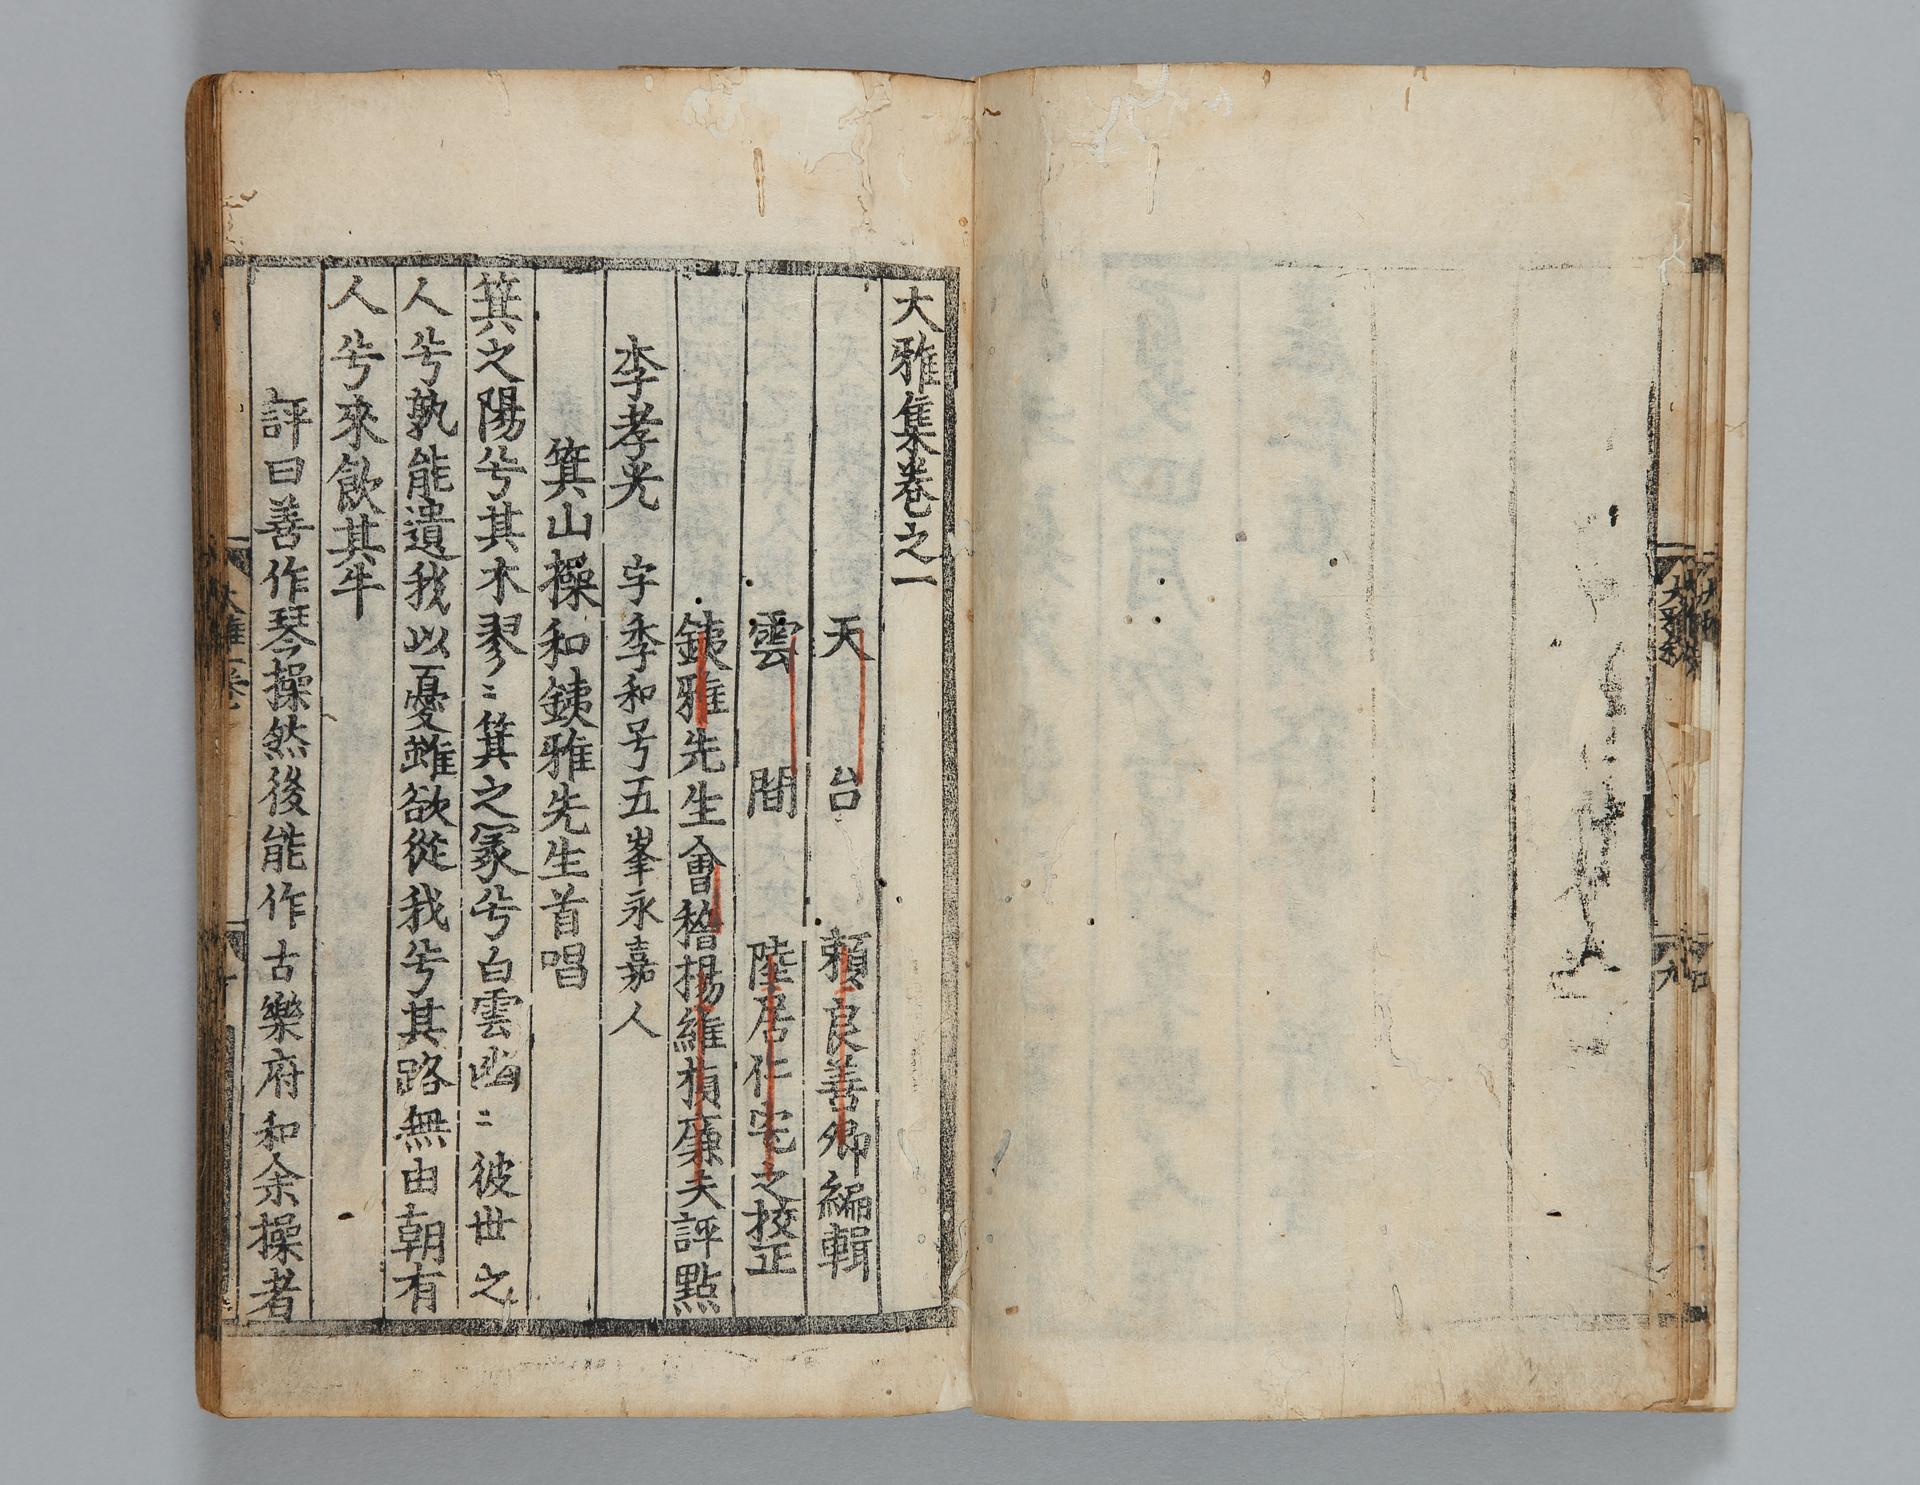 大雅集卷之一
天台賴良善卿編輯
雲間陸居仁宅之校正
銕雅先生會稽楊維楨廉夫評點
李孝光 字季和号五峯永嘉人
箕山操和銕雅先生首唱
箕之陽兮其木翏〻箕之冢兮白雲幽〻彼世之
人兮孰能遺我以憂雖欲從我兮其路無由朝有
人兮來飲其牛
評曰善作琴操然後能作古樂府和余操者